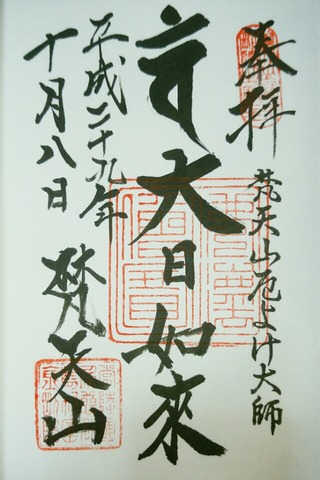 奉拝
梵天山厄よけ大師
大日如來
平成二十九年
十月八日
梵天山